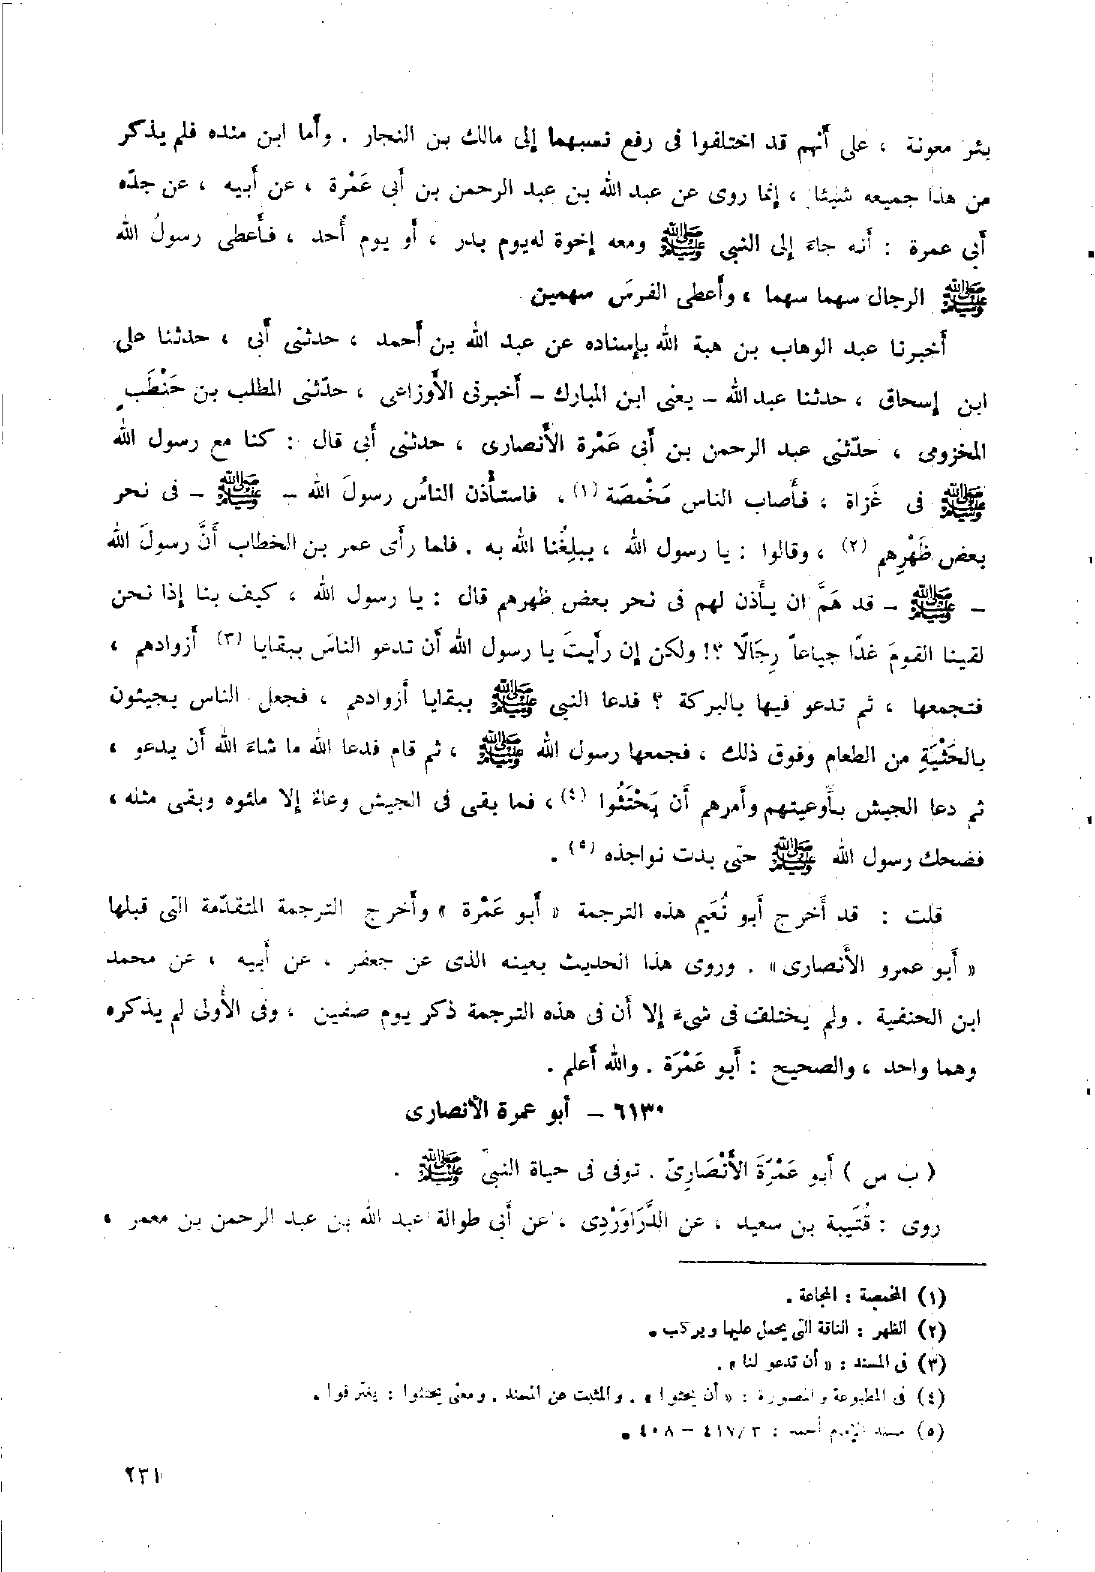 بئر معونة ، على أنهم قد اختلفوا فى رفع نسبهما إلى مالك بن النجار . وأما ابن منده فلم يذكر
من هذا جميعه شيئا ، إنما روى عن عبد الله بن عبد الرحمن بن أبى عَمْرة ، عن أبيه ، عن جدّه
أبى عمرة : أنه جاءَ إلى النبى ﷺ ومعه إخوة له يوم بدر ، أو يوم أُحد ، فأَعطى رسولُ الله
ﷺ الرجال سهما سهما ، وأَعطى الفرسَ سهمين
أخبرنا عبد الوهاب بن هبة الله بإسناده عن عبد الله بن أحمد ، حدثنى أبى ، حدثنا على
ابن إسحاق ، حدثنا عبد الله – يعنى ابن المبارك – أخبرنى الأوزاعى ، حدّثنى المطلب بن حَنْطَبٍ
المخزومى ، حدّثنى عبد الرحمن بن أبى عَمْرة الأنصارى ، حدثنى أبى قال : كنا مع رسول الله
ﷺ فى غَزاة ، فأَصاب الناس مَخْمصَة (١) ، فاستأذن الناسُ رسولَ الله – ﷺ – فى نحر
بعض ظَهْرِهم (٢) ، وقالوا : يا رسول الله ، يبلِغُنا الله به . فلما رأى عمر بن الخطاب أَنَّ رسولَ الله
– ﷺ – قد هَمَّ ان يأذن لهم فى نحر بعض ظهرهم قال : يا رسول الله ، كيف بنا إذا نحن
لقينا القومَ غدًا جياعاً رِجَالًا ؟! ولكن إن رأيتَ يا رسول الله أن تدعو الناسَ ببقايا (٣) أزوادهم ،
فتجمعها ، ثم تدعو فيها بالبركة ؟ فدعا النبى ﷺ ببقايا أزوادهم ، فجعل الناس يجيئون
بالحَثْيَةِ من الطعام وفوق ذلك ، فجمعها رسول الله ﷺ ، ثم قام فدعا الله ما شاءَ الله أن يدعو ،
ثم دعا الجيش بأوعيتهم وأمرهم أن يَحْتَثُوا (٤) ، فما بقى فى الجيش وعاءٌ إلا ملئوه وبقى مثله ،
فضحك رسول الله ﷺ حتى بدت نواجذه (٥) .
قلت : قد أخرج أبو نُعَيم هذه الترجمة « أبو عَمْرة » وأخرج الترجمة المتقدّمة التى قبلها
« أبو عمرو الأنصارى» . وروى هذا الحديث بعينه الذى عن جعفر ، عن أبيه ، عن محمد
ابن الحنفية . ولم يختلف فى شىءَ إلا أن فى هذه الترجمة ذكر يوم صفين ، وفى الأولى لم يذكره
وهما واحد ، والصحيح : أبو عَمْرَة . والله أعلم .
٦١٣٠ – أبو عمرة الأنصارى
( ب س ) أبو عَمْرَةَ الأَنْصَارِىّ . توفى فى حياة النبىّ ﷺ .
روى : قُتَيبة بن سعيد ، عن الدَّرَاوَرْدِى ، عن أبى طوالة عبد الله بن عبد الرحمن بن معمر ،
(١) المخمصة : المجاعة .
(٢) الظهر : الناقة التى يحمل عليها ويركب .
(٣) فى المسند : « أن تدعو لنا » .
(٤) فى المطبوعة والمصورة : « أن يحثوا » . والمثبت عن المسند . ومعنى يحتثوا : يغترفوا .
(٥) مسند الإمام أحمد : ٣/٤١٧ – ٤٠٨ .
٢٣١